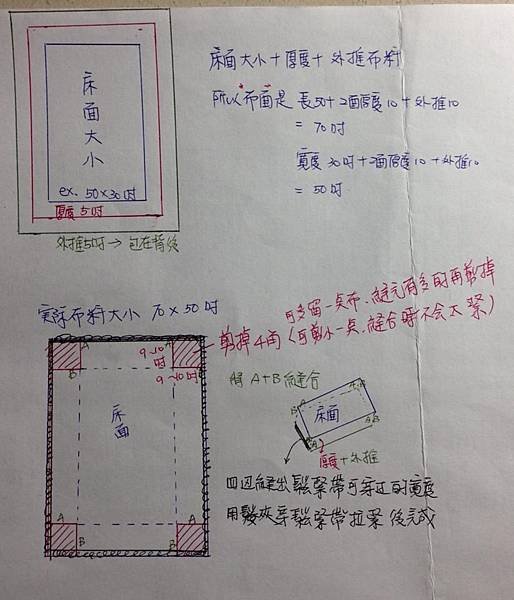 床面大小
ex. 50x30吋
厚度5吋
外推5吋→包在背後
床面大小+厚度+外推布料
所以布面是 長50+2面厚度10+外推10
= 70吋
寬度30吋+2面厚度10+外推10
= 50吋
實際布料大小 70x50吋
可多留一点布、縫完有多的再剪掉
剪掉4角(可剪小一点,縫合時不会太緊)
A
A
9~10吋
B
9~10吋
床面
A
B
A
B
將A+B縫合
床面
A.B
B
A
A.B
厚度+外推
四边縫出鬆緊帶可穿过的寬度
用髮夾穿鬆緊帶拉緊後完成